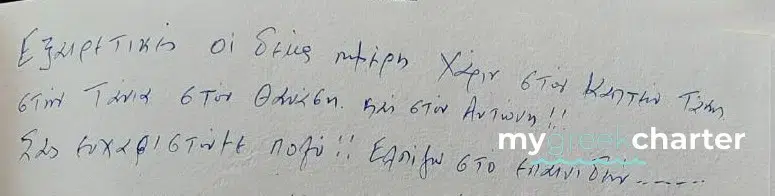 Εξαιρετικές οι δέκα ημέρες Χάριν στον Καπτεν Τάκη
στην Τάνια στον Θανάση. και στον Αντώνη!!
Σας ευχαριστούμε πολύ!! Ελπίζω στο επανιδείν......
mygreekcharter